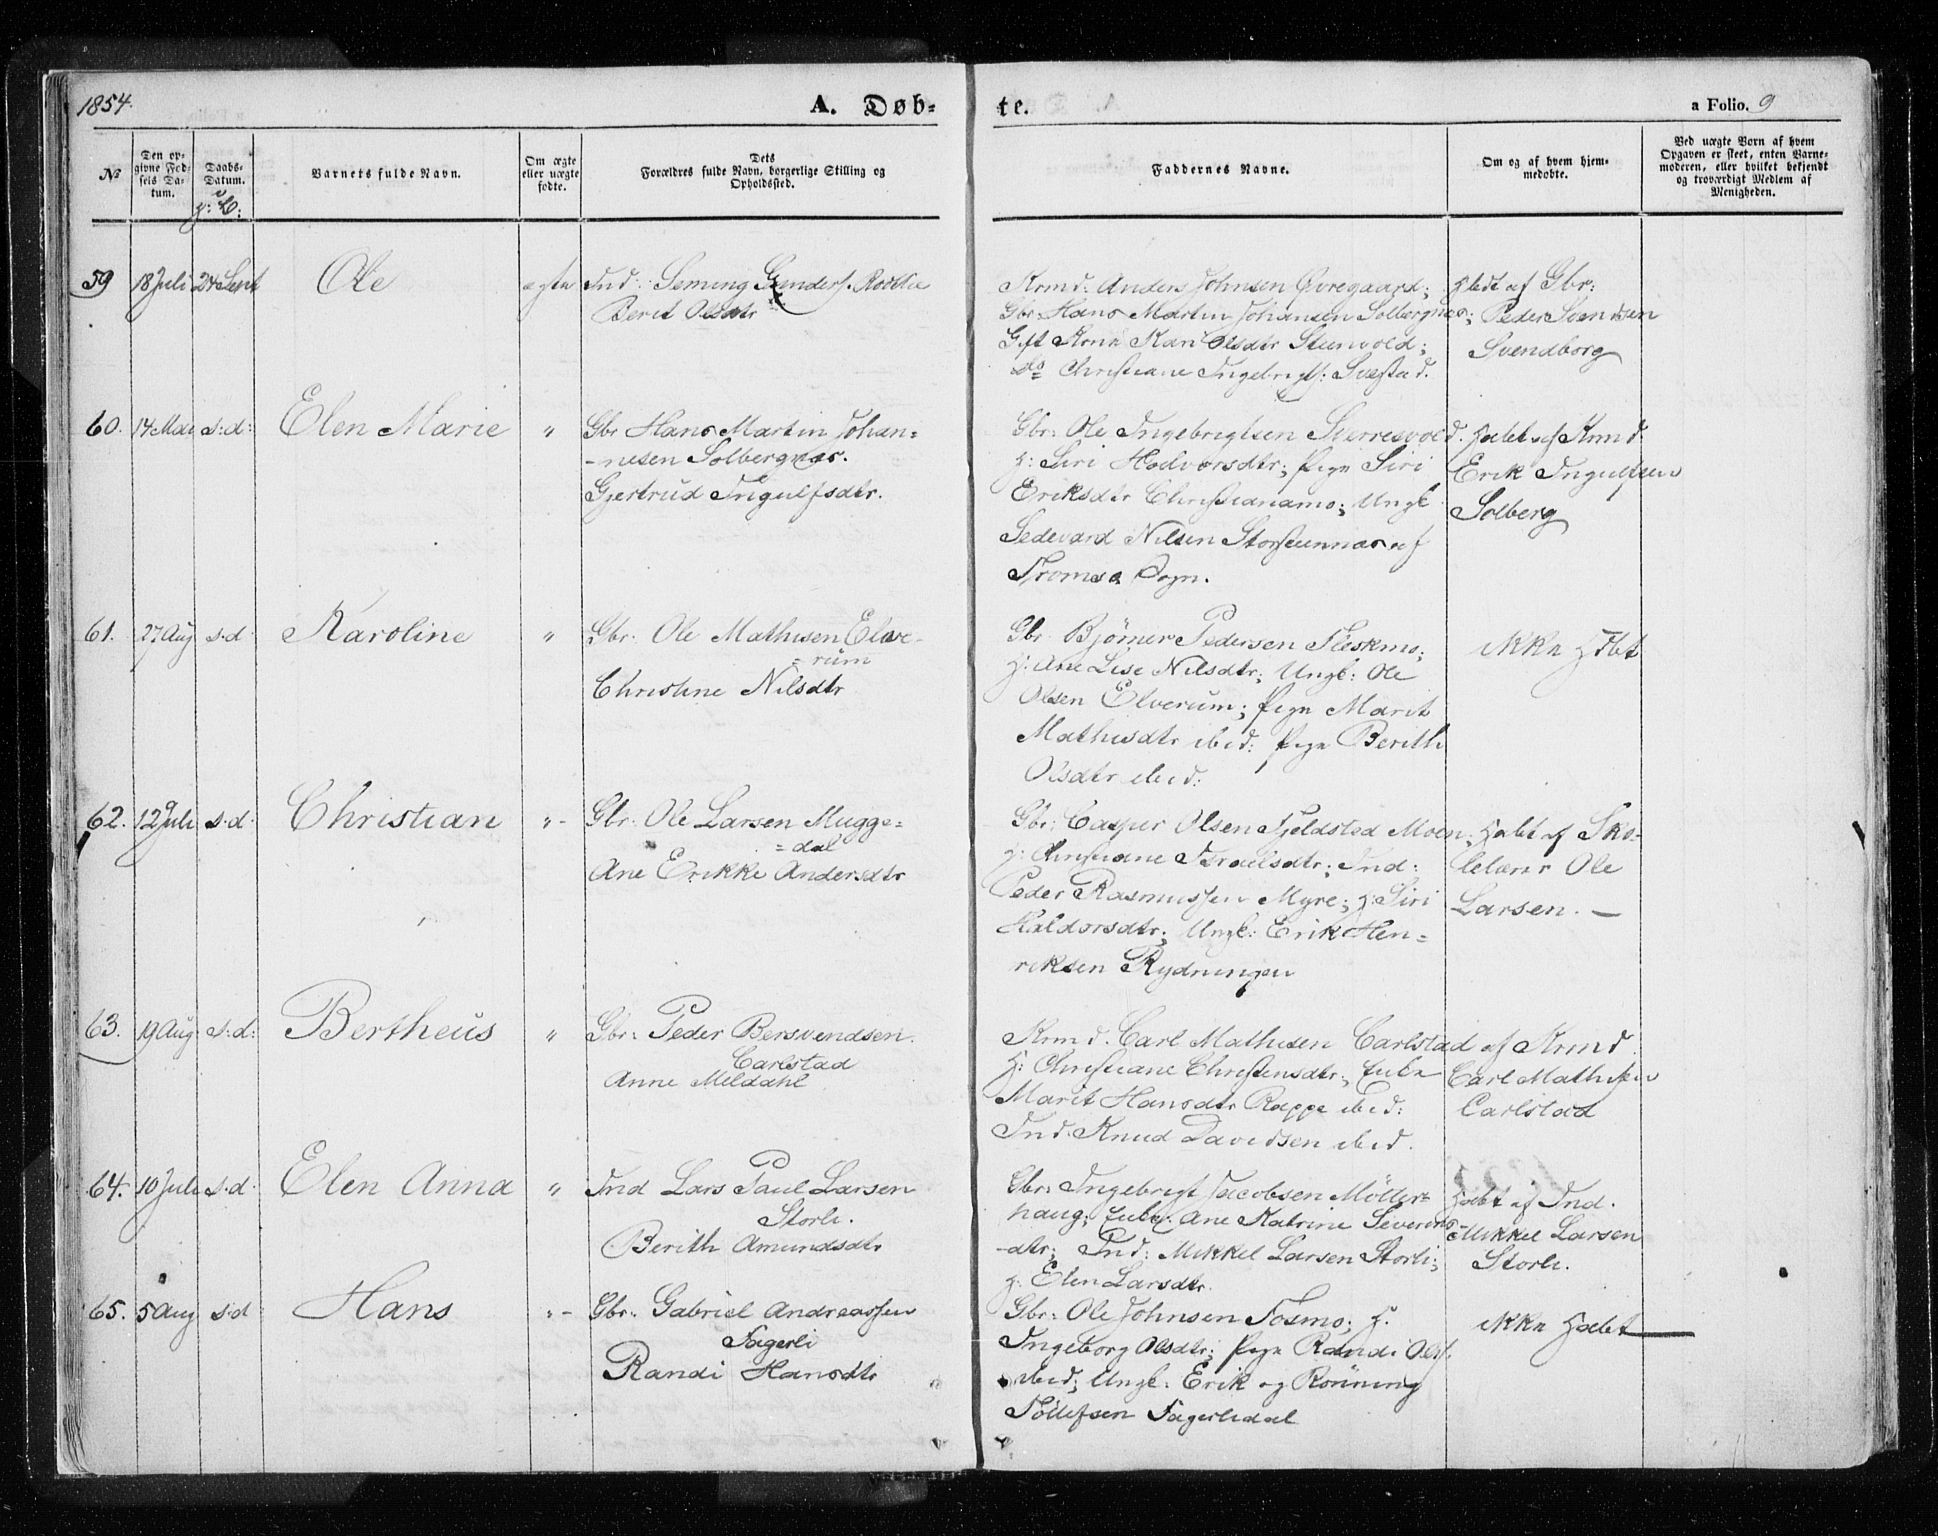 1854.
A. Døb-
te.
a Folio. 9
No
Den op-
givne Fød-
sels Da-
tum.
Daabs-
Datum.
Barnets fulde Navn.
Om ægte
eller uægte
fødte.
Dets
Forældres fulde Navn, borgerlige Stilling og
Opholdssted.
Faddernes Navne.
Om og af hvem hjem-
medøbte.
Ved uægte Børn af hvem
Opgaven er skeet, enten Barne-
moderen, eller hvilket bekjendt
og troværdigt Medlem af
Menigheden.
59 18 Juli 24 Sept Ole ægte Ind: Seming
Berit Olsdtr
Krmd: Anders Johnsen Øvregaard;
Gbr: Hans Martin Johansen Solbergnæs;
Gift Kone Kari Olsdtr Steenvold;
do Christiane Ingebrigts: Svestad.
Hdbt af Gbr:
Peder Svendsen
Svendborg
60. 14 Mai s:d: Elen Marie " Gbr Hans Martin Johan=
-nesen Solbergnæs.
Gjertrud Ingulfsdtr.
Gbr: Ole Ingebrigtsen Sverresvold.
H: Siri Hodvorsdtr; Pige Siri
Eriksdtr Christianamo; Ungk
Sedevard Nilsen Storsteennæs af
Tromsø Sogn.
Hdbt af Krmd.
Erik Ingulfsen
Solberg
61. 27 Aug s.d. Karoline " Gbr. Ole Mathisen Elve-
-rum
Christine Nilsdtr
Gbr Bjørner Pedersen Fleskmo;
H: Ane Lise Nilsdtr; Ungk: Ole
Olsen Elverum; Pige Marit
Mathisdtr ibid: Pige Berith
Olsdtr ibid:
ikke Hdbt
62. 12 Juli s.d. Christian "- Gbr. Ole Larsen Mugge=
=dal
Ane Erikke Andersdtr
Gbr: Casper Olsen Fjeldstad Moen;
H: Christiane Israelsdtr; Ind:
Peder Rasmussen Myre; H: Siri
Haldorsdtr; Ungk: Erik Hen=
riksen Rydningen
Hdbt af Sko-
lelærer Ole
Larsen. —
63. 19 Aug s:d: Bertheus " Gbr: Peder Bersvendsen.
Carlstad
Anne Meldahl
Krmd. Carl Mathisen Carlstad
H: Christiane Christensdtr; Enke
Marit Hansdtr Rappe ibid:
Ind. Knud Davidsen ibid.
af Krmd.
Carl Mathisen
Carlstad
64. 10 Juli s.d. Elen Anna " Ind Lars Paul Larsen
Storli.
Berith Amundsdtr
Gbr: Ingebrigt Jacobsen Möller=
haug; Enke: Ane Katrine Severins-
-dtr; Ind: Mikkel Larsen Storli;
H: Elen Larsdtr.
Hdbt af Ind.
Mikkel Larsen
Storli.
65. 5 Aug s:d Hans "- Gbr: Gabriel Andreassen
Fagerli
Randi Hansdtr
Gbr: Ole Johnsen Fosmo; H.
Ingeborg Olsdtr; Pige Randi Ols.
ibid; Ungk: Erik og Rönning
Tollefsen Fagerlidal
ikke Hdbt